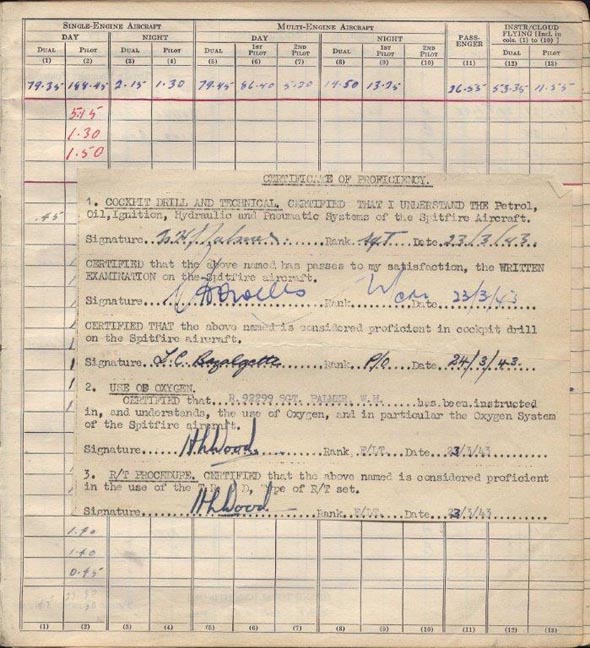 SINGLE-ENGINE AIRCRAFT MULTI-ENGINE AIRCRAFT PASS-ENGER INSTR/CLOUD FLYING [Incl. in cols. (1) to (10)]
DAY NIGHT DAY NIGHT
DUAL PILOT DUAL PILOT DUAL 1ST PILOT 2ND PILOT DUAL 1ST PILOT 2ND PILOT DUAL PILOT
(1) (2) (3) (4) (5) (6) (7) (8) (9) (10) (11) (12) (13)
79.35 2.15 1.30 79.45 86.40 5.20 13.25 26.55 53.35 11.55
5.15
1.30
1.50
CERTIFICATE OF PROFICIENCY.
1. COCKPIT DRILL AND TECHNICAL. CERTIFIED THAT I UNDERSTAND THE Petrol,
.45 Oil,Ignition, Hydraulic and Pneumatic Systems of the Spitfire Aircraft.
Signature W.H. Palmer Rank Sgt Date 23/3/43
CERTIFIED that the above named has passes to my satisfaction, the WRITTEN
EXAMINATION on the Spitfire aircraft.
Signature Rank Date 23/3/43
CERTIFIED THAT the above named is considered proficient in cockpit drill
on the Spitfire Aircraft.
Signature Rank P/O Date 24/3/43
2. USE OF OXYGEN.
CERTIFIED that R.92299 SGT. PALMER, W.H. has been instructed
in, and understands, the use of Oxygen, and in particular the Oxygen System
of the Spitfire aircraft.
Signature HhWood Rank F/LT. Date 23/3/43
3. R/T PROCEDURE. CERTIFIED that the above named is considered proficient
in the use of the Type of R/T set.
Signature HhWood Rank F/LT. Date 23/3/43
1.40
0.45
(1) (2) (3) (4) (5) (6) (7) (8) (9) (10) (11) (12) (13)